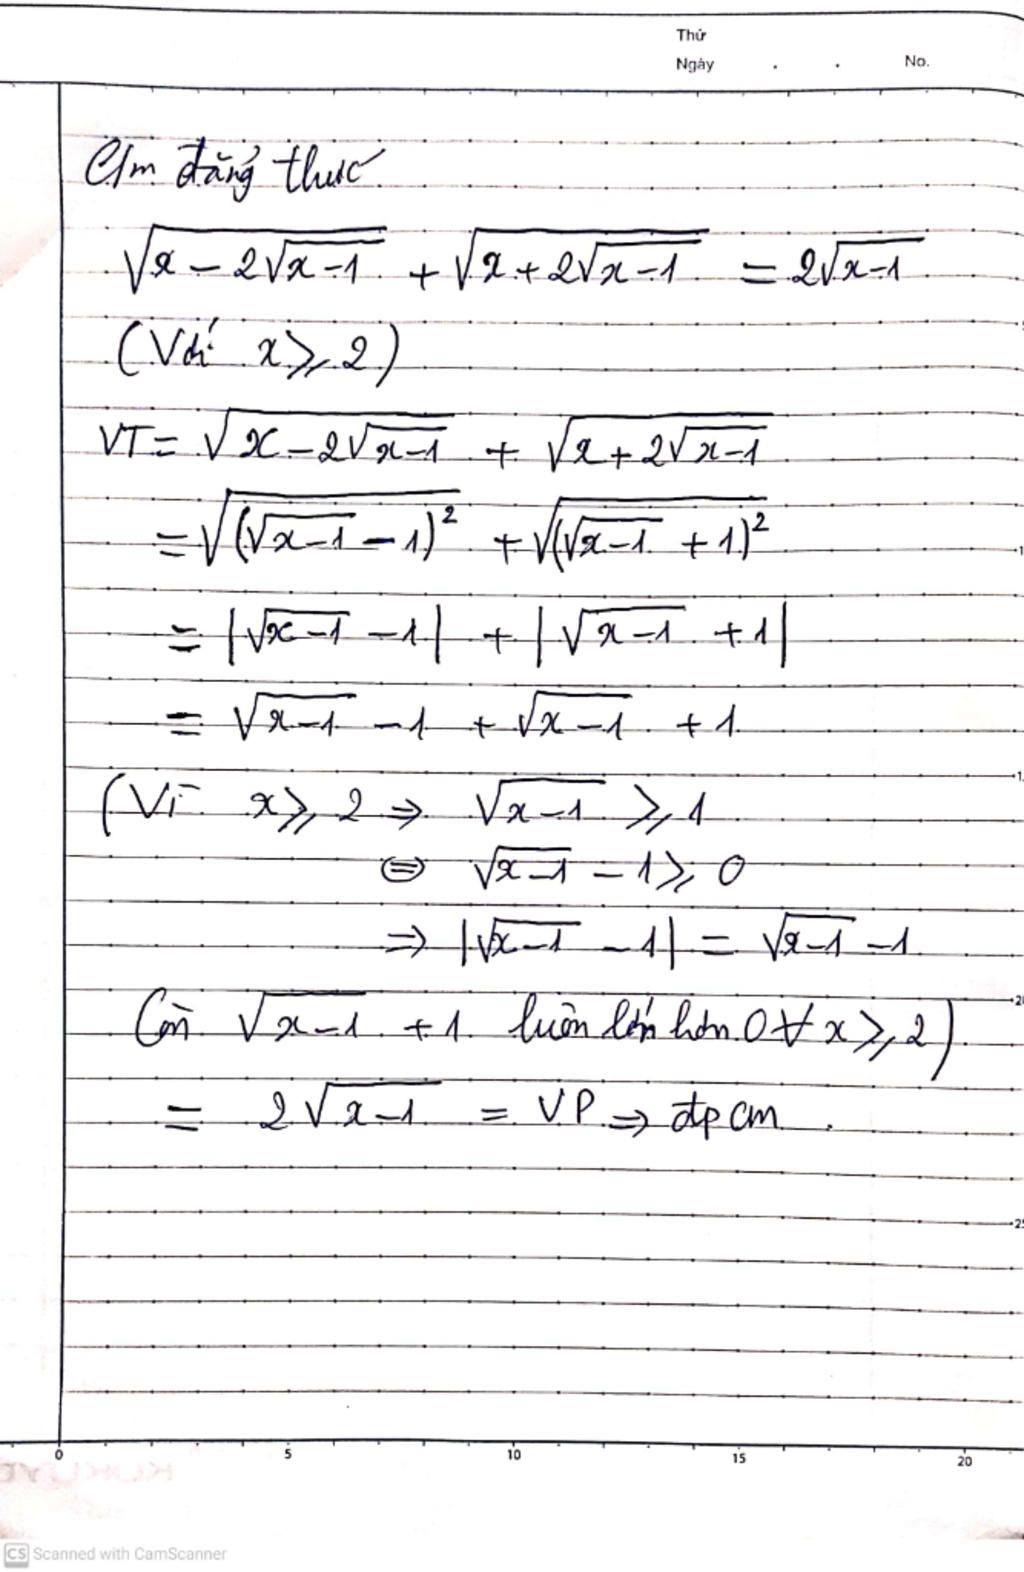 Thứ
Ngày . . No.
C/m đẳng thức
√(x − 2√(x−1)) + √(x + 2√(x−1)) = 2√(x−1)
(Với x ⩾ 2)
VT = √(x − 2√(x−1)) + √(x + 2√(x−1))
= √((√(x−1) − 1)²) + √((√(x−1) + 1)²)
= |√(x−1) − 1| + |√(x−1) + 1|
= √(x−1) − 1 + √(x−1) + 1
(Vì x ⩾ 2 ⇒ √(x−1) ⩾ 1
⇔ √(x−1) − 1 ⩾ 0
⇒ |√(x−1) − 1| = √(x−1) − 1
Còn √(x−1) + 1 luôn lớn hơn 0 ∀ x ⩾ 2)
= 2√(x−1) = VP ⇒ đpcm.
0 5 10 15 20
CS Scanned with CamScanner